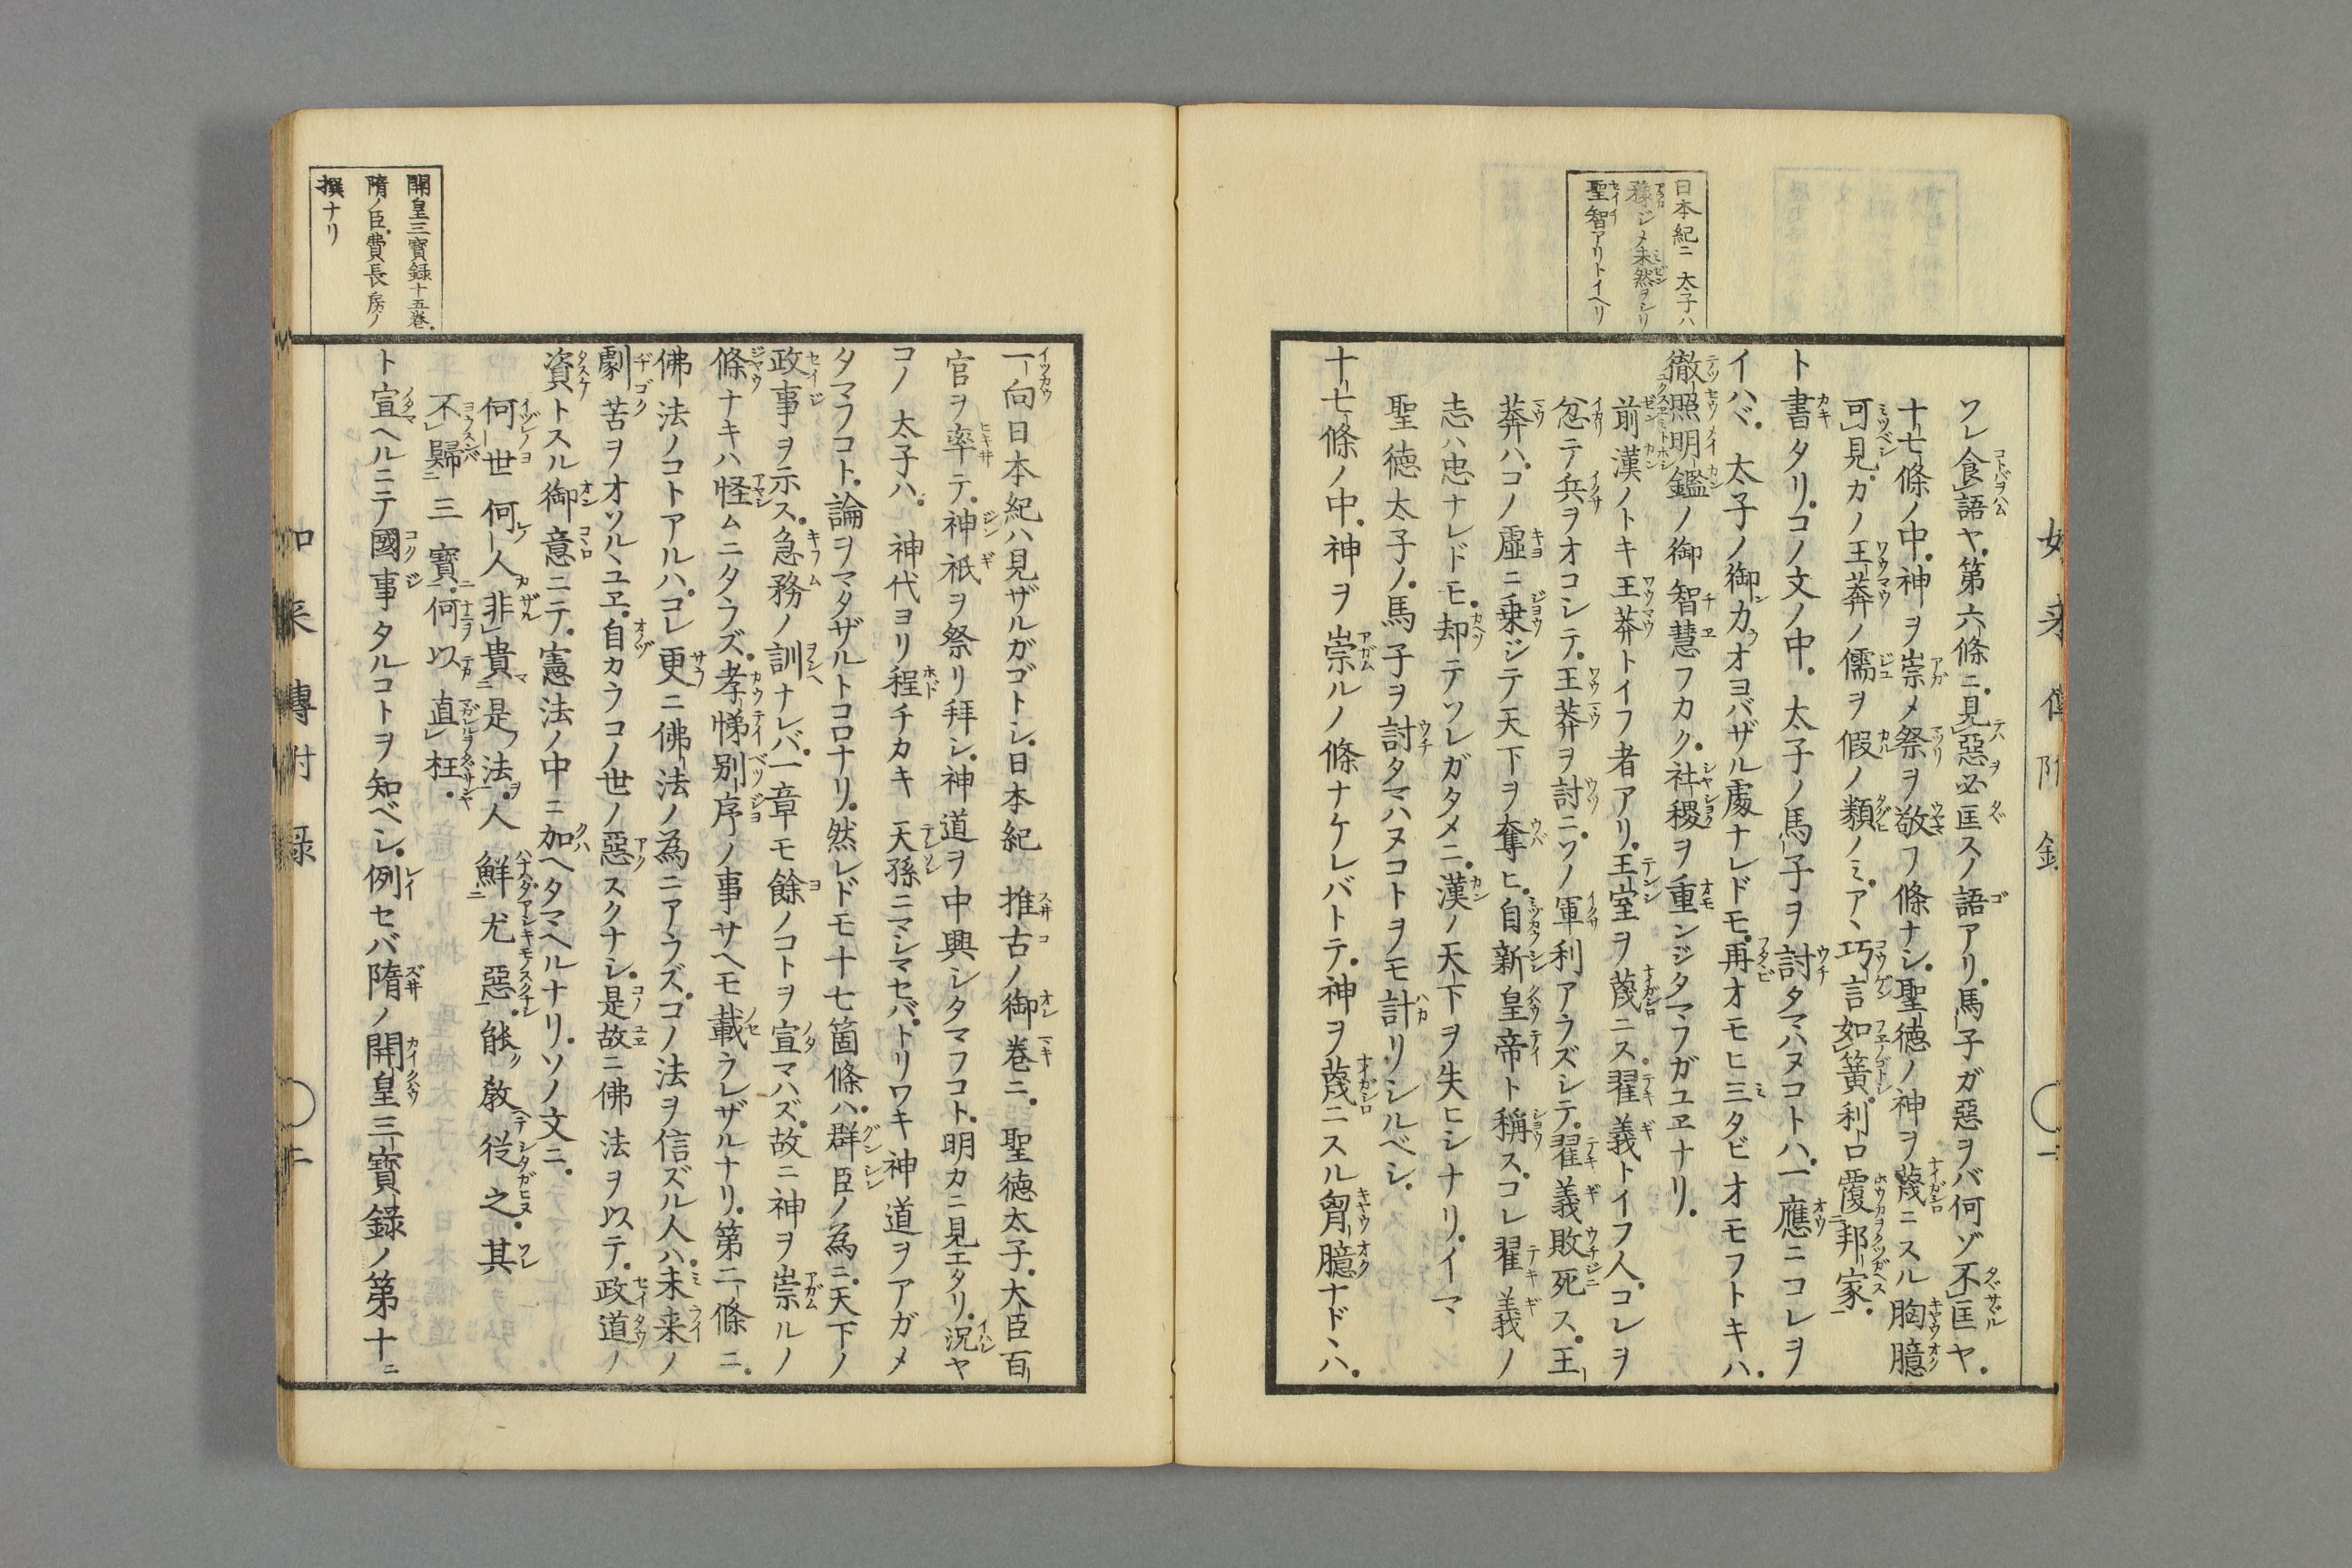 日本紀ニ 太子ハ
豫ジメ未然ヲシリ
聖智アリトイヘリ
ソレ食語ヤ。第六條ニ。見惡必匡スノ語アリ。馬子ガ惡ヲバ何ゾ不匡ヤ。
十七條ノ中。神ヲ崇メ祭ヲ敬フ條ナシ。聖德ノ神ヲ蔑ニスル胸臆
可見。カノ王莽ノ儒ヲ假ノ類ノミ。アヽ巧言如簧。利口覆邦家。
ト書タリ。コノ文ノ中。 太子ノ馬子ヲ討タマハヌコトハ。一應ニコレヲ
イハヾ。 太子ノ御カオヨバザル處ナレドモ。再オモヒ三タビオモフトキハ。
徹照明鑑ノ御智慧フカク。社稷ヲ重ンジタマフガユヱナリ。
前漢ノトキ王莽トイフ者アリ。王室ヲ蔑ニス。翟義トイフ人。コレヲ
忿テ兵ヲオコシテ。王莽ヲ討ニ。ソノ軍利アラズシテ。翟義敗死ス。王
莽ハ。コノ虛ニ乗ジテ天下ヲ奪ヒ。自新皇帝ト稱ス。コレ翟義ノ
志ハ忠ナレドモ。却テソレガタメニ。漢ノ天下ヲ失ヒシナリ。イマ
聖德太子ノ。馬子ヲ討タマハヌコトヲモ計リシルベシ。
十七條ノ中。神ヲ崇ルノ條ナケレバトテ。神ヲ蔑ニスル胷臆ナドヽハ。
一向日本紀ハ見ザルガゴトシ。日本紀 推古ノ御卷ニ。 聖德太子。大臣百
官ヲ率テ。神祇ヲ祭リ拜シ。神道ヲ中興シタマフコト。明カニ見エタリ。況ヤ
コノ 太子ハ。 神代ヨリ程チカキ 天孫ニマシマセバ。トリワキ神道ヲアガメ
タマフコト。論ヲマタザルトコロナリ。然レドモ十七箇條ハ。群臣ノ為ニ。天下ノ
政事ヲ示ス。急務ノ訓ナレバ。一章モ餘ノコトヲ宣マハズ。故ニ神ヲ崇ルノ
條ナキハ怪ムニタラズ。孝悌別序ノ事サヘモ載ラレザルナリ。第二條ニ。
佛法ノコトアルハ。コレ更ニ佛法ノ為ニアラズ。コノ法ヲ信ズル人ハ。未来ノ
劇苦ヲオソルヽユヱ。自カラコノ世ノ惡スクナシ。是故ニ佛法ヲ以テ。政道ノ
資トスル御意ニテ。憲法ノ中ニ加ヘタマヘルナリ。ソノ文ニ。
何世何人非貴是法。人鮮尤惡。能敎従之。其
不歸三寶。何以直枉。
ト宣ヘルニテ國事タルコトヲ知ベシ。例セバ隋ノ開皇三寶録ノ第十二
開皇三寶録十五卷。
隋ノ臣。費長房ノ
撰ナリ
如来傳附録
二